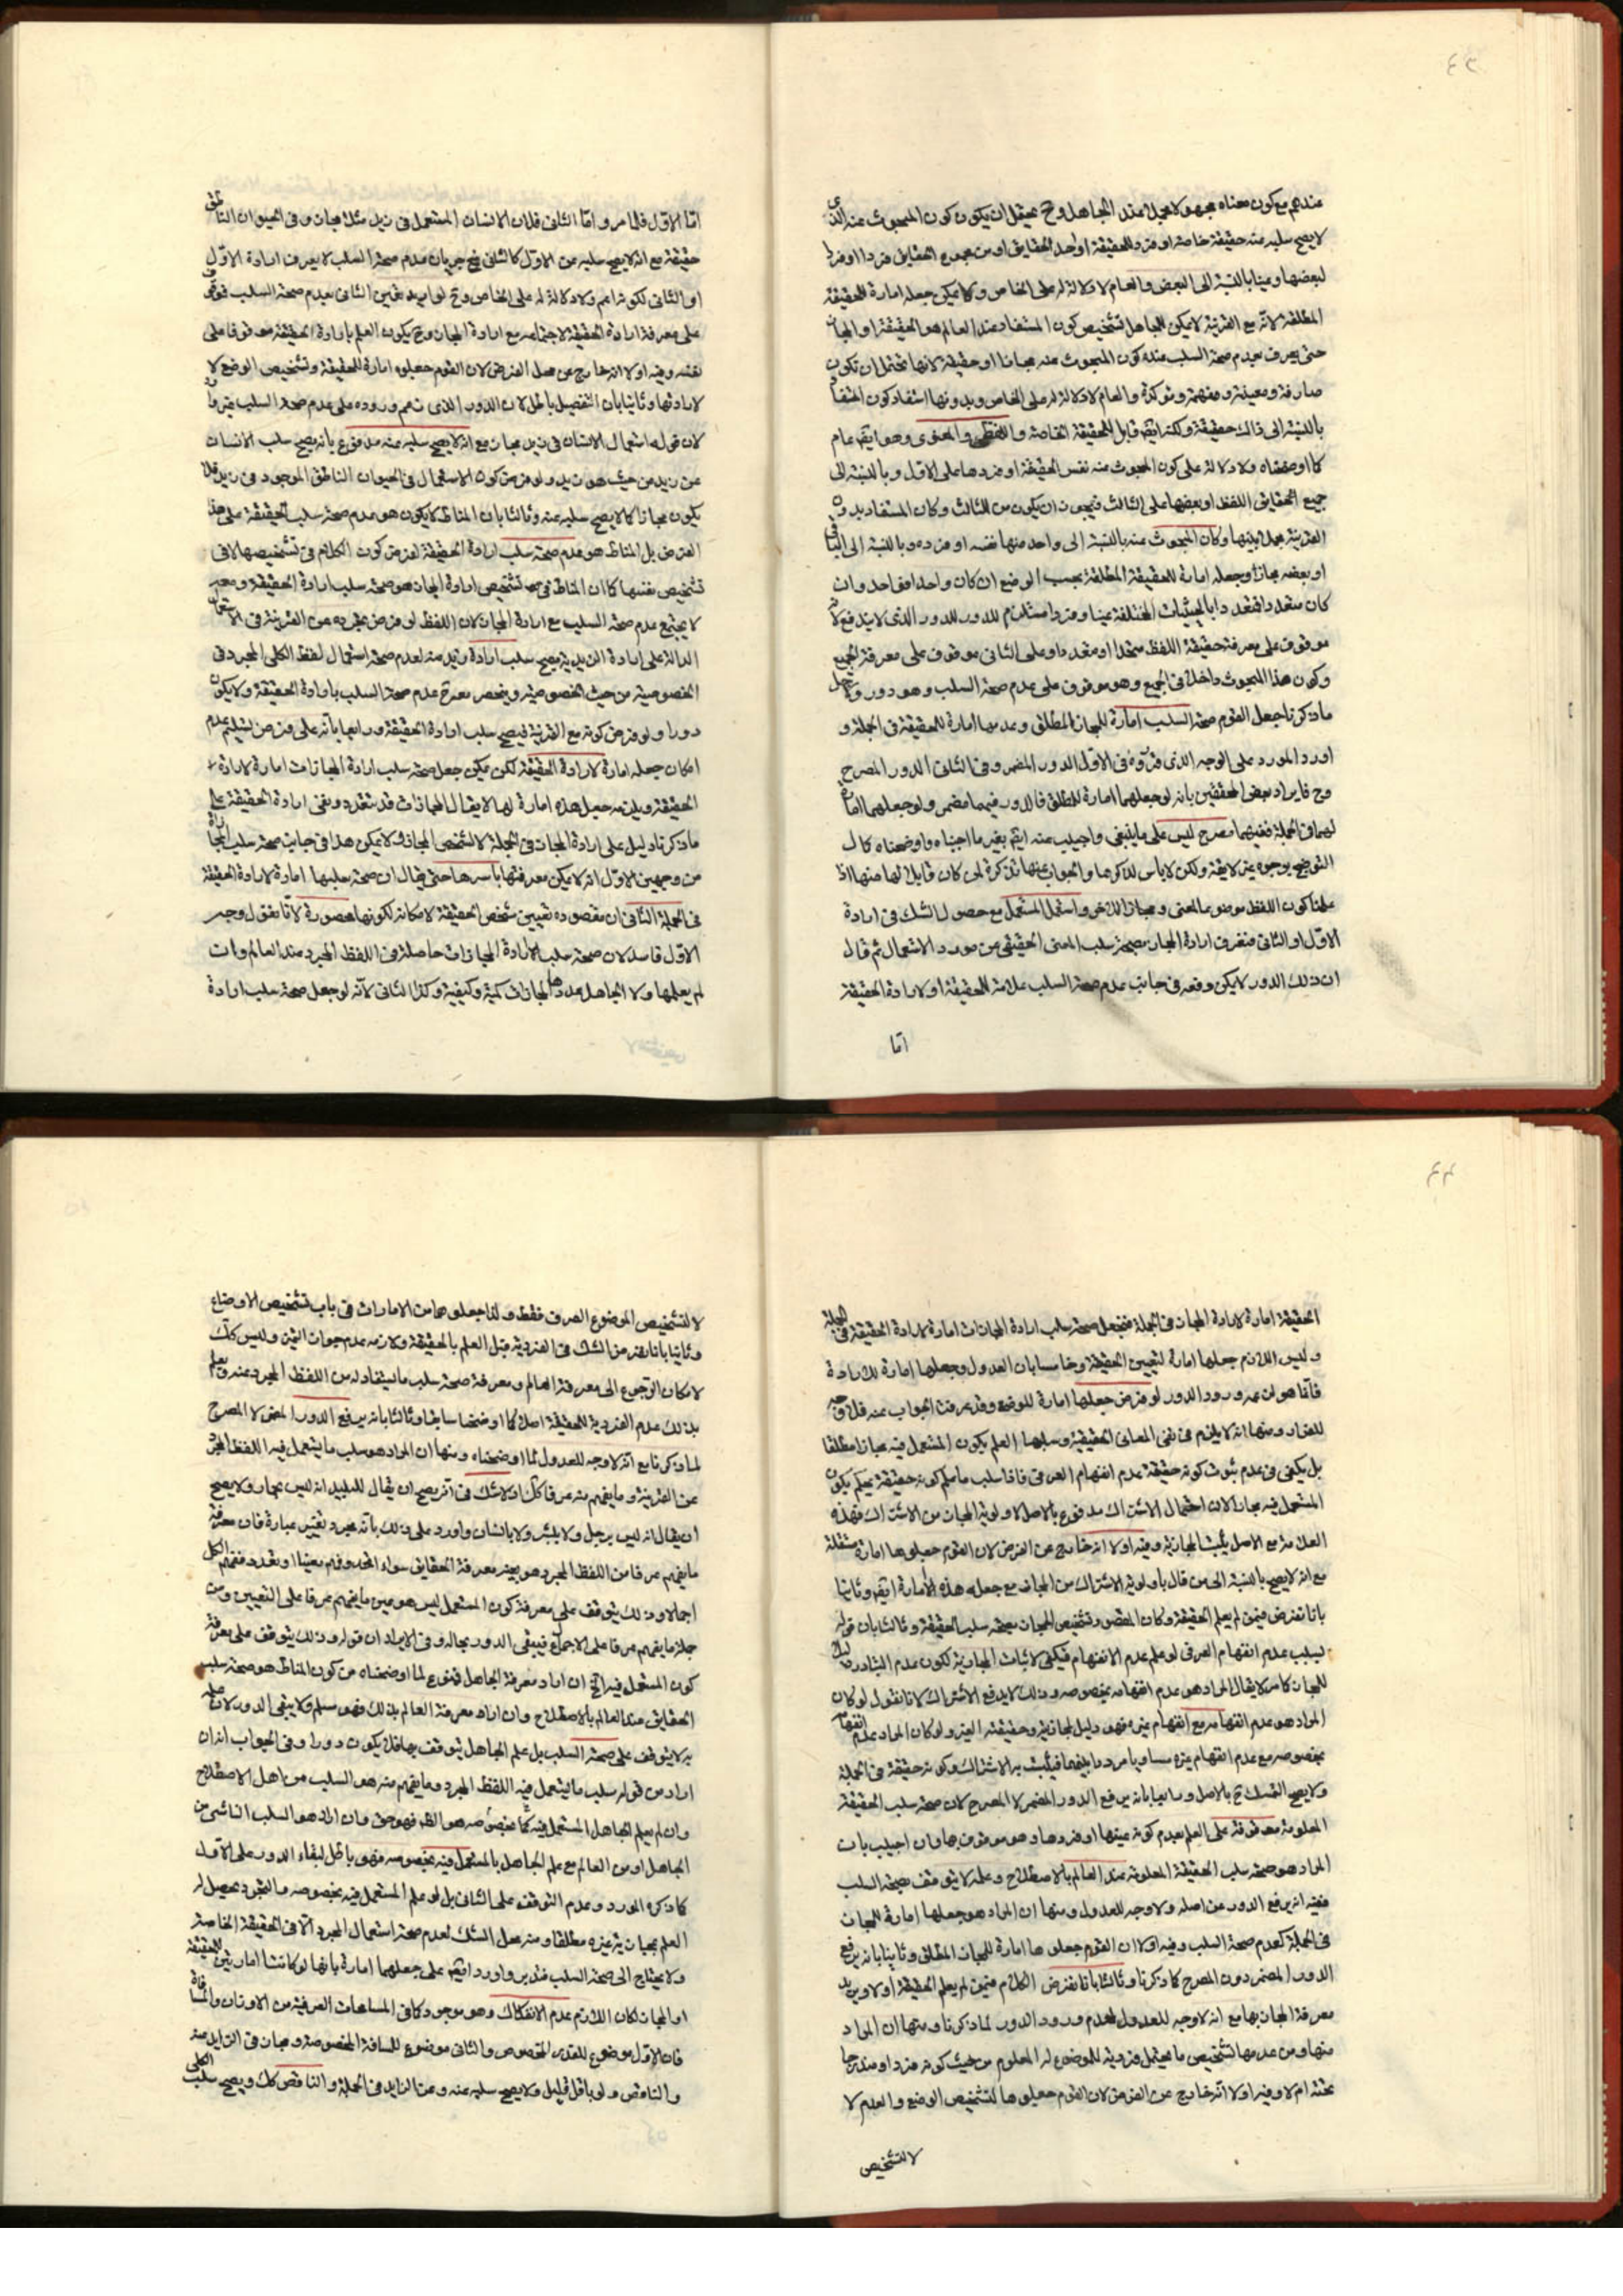 ٤٣
عندهم مع كون معناه مجهولا مجملا عند الجاهل وح يحتمل ان يكون كون المبحوث عنه الذى
لا يصح سلبه عنه حقيقة خاصة او فرد الحقيقة او احد الحقايق او من جميع الحقايق فردا او فردا
لبعضها وعينا بالنسبة الى البعض والعام لا دلالة له على الخاص ولا يمكن جعله امارة للحقيقة
المطلقة لانه مع القرينة لا يمكن للجاهل تشخيص كون المستفاد عند العالم هو الحقيقة او المجاز
حتى يعرف بعدم صحة السلب عنده كون المبحوث عنه مجازا او حقيقة لانها تحتمل ان تكون
صارفة ومعينة ومفهمة ومؤكدة والعام لا دلالة له على الخاص وبدونها استفاد كون المستفاد
بالنسبة الى ذلك حقيقة ولكنه ايضا قابل للحقيقة الخاصة واللفظى والمعنوى وهو ايضا عام
كما اوضحناه ولا دلالة على كون المبحوث عنه نفس الحقيقة او فردها على الاول وبالنسبة الى
جميع الحقايق اللفظ او بعضها على الثالث فيجوز ان يكون من الثالث وكان المستفاد بدون
القرينة مجملا بينها وكان المبحوث عنه بالنسبة الى واحد منها نفسه او فرده وبالنسبة الى الباقى
او بعضه مجازا وجعله امارة للحقيقة المطلقة بحسب الوضع ان كان واحدا فواحد وان
كان متعددا فتعدد دابالحيثيات المختلفة عينا وفردا مستلزم للدور للدور الذى لا يندفع لانه
موقوف على معرفة حقيقة اللفظ متحدا او متعددا وعلى الثانى موقوف على معرفة الجميع
وكون هذا المبحوث داخلا فى الجميع وهو موقوف على عدم صحة السلب وهو دور ولاجل
ما ذكرنا جعل القوم صحة السلب امارة للمجاز المطلق وعدمها امارة للحقيقة فى الجملة و
اورد المورد على الوجه الذى قرروه فى الاول الدور المضمر وفى الثانى الدور المصرح
وح فايراد بعض المحققين بانه لو جعلهما امارة للمطلق فالدور فيهما مضمر ولو جعلهما امارة
لهما فى الجملة ففيهما مصرح ليس على ما ينبغى واجيب عنه ايضا بغير ما اجبناه واوضحناه كمال
التوضيح بوجوه غير لايقة ولكن لا باس لذكرها والجواب عنها تذكرة لمن كان قابلا لها منها اذا
علمنا كون اللفظ موضوعا لمعنى ومجازا لآخر واستعمل المستعمل مع حصول الشك فى ارادة
الاول او الثانى فنعرف ارادة المجاز بصحة سلب المعنى الحقيقى عن مورد الاستعمال ثم قال
ان ذلك الدور لا يمكن دفعه فى جانب عدم صحة السلب علامة للحقيقة او لارادة الحقيقة
اما
اما الاول فلما مر واما الثانى فلان الانسان المستعمل فى زيد مثلا مجاز وفى الحيوان الناطق
حقيقة مع انه لا يصح سلبه عن الاول كالثانى فح جريان عدم صحة السلب لا يعرف ارادة الاول
او الثانى لكونه اعم ولا دلالة له على الخاص وح لو اريد تعيين الثانى بعدم صحة السلب فتوقف
على معرفة ارادة الحقيقة لاجتماعه مع ارادة المجاز وح يكون العلم بارادة الحقيقة موقوفا على
نفسه وفيه اولا انه خارج عن محل الفرض لان القوم جعلوه امارة للحقيقة وتشخيص الوضع لا
لارادتها وثانيا بان التفصيل باطل لان الدور الذى زعم وروده على عدم صحة السلب غير وارد
لان قوله استعمال الانسان فى زيد مجاز مع انه لا يصح سلبه عنه مدفوع بانه يصح سلب الانسان
عن زيد من حيث هو زيد ولو فرض كون الاستعمال فى الحيوان الناطق الموجود فى زيد فلا
يكون مجازا كما لا يصح سلبه عنه وثالثا بان المناط لا يكون هو عدم صحة سلب الحقيقة على هذا
الفرض بل المناط هو عدم صحة سلب ارادة الحقيقة لفرض كون الكلام فى تشخيصها لا فى
تشخيص نفسها كما ان المناط فى تشخيص ارادة المجاز هو صحة سلب ارادة الحقيقة ومعه
لا يجتمع عدم صحة السلب مع ارادة المجاز لان اللفظ لو فرض تجرده عن القرينة فى الاستعمال
الدالة على ارادة الزيدية يصح سلب ارادة زيد منه لعدم صحة استعمال لفظ الكلى المجرد فى
الخصوصية من حيث الخصوصية وينحصر معرفة عدم صحة السلب بارادة الحقيقة ولا يكون
دورا ولو فرض كونه مع القرينة فيصح سلب ارادة الحقيقة ورابعا بانه على فرض تسليم عدم
امكان جعله امارة لارادة الحقيقة لكن يمكن جعل صحة سلب ارادة المجازات امارة لارادة
الحقيقة ويلزمه جعل هذه امارة لها لا يقال المجازات قد تتعدد ونفى ارادة الحقيقة على
ما ذكرنا دليل على ارادة المجاز فى الجملة لا لشخص المجاز ولا يمكن هذا فى جانب صحة سلب المجازات
من وجهين الاول انه لا يمكن معرفتها باسرها حتى يقال ان صحة سلبها امارة لارادة الحقيقة
فى الجملة الثانى ان مقصوده تعيين شخص الحقيقة لامكانه لكونها محصورة لانا نقول وجه
الاول فاسد لان صحة سلب ارادة المجازات حاصلة فى اللفظ المجرد عند العالم وان
لم يعلمها ولا الجاهل عدد المجازات كمية وكيفية وكذا الثانى لانه لو جعل صحة سلب ارادة
٤٤
الحقيقة امارة لارادة المجاز فى الجملة فنجعل صحة سلب ارادة المجازات امارة لارادة الحقيقة فى الجملة
وليس اللازم جعلها امارة لتعيين الحقيقة وخامسا بان العدول وجعلها امارة للارادة
فانما هو لزعمه ورود الدور لو فرض جعلها امارة للوضع وقد عرفت الجواب عنه فلا وجه
للعدول ومنها انه لا يلزم فى نفى المعانى الحقيقية وسلبها العلم بكون المستعمل فيه مجازا مطلقا
بل يكفى فى عدم ثبوت كونه حقيقة عدم انفهام العرفى فاذا سلب ما علم كونه حقيقة يحكم بكون
المستعمل فيه مجازا لان احتمال الاشتراك مدفوع بالاصل ولاولوية المجاز من الاشتراك فهذه
العلامة مع الاصل يثبت المجازية وفيه اولا انه خارج عن الفرض لان القوم جعلوها امارة مستقلة
مع انه لا يصح بالنسبة الى من قال باولوية الاشتراك من المجاز مع جعله هذه الامارة ايضا وثانيا
بانا نفرض فيمن لم يعلم الحقيقة وكان المقصود تشخيص المجاز بصحة سلب الحقيقة وثالثا بان قوله
لسلب عدم انفهام العرفى لو علم عدم الانفهام فيكفى لاثبات المجازية لكون عدم التبادر دليلا
للمجاز كما مر لا يقال المراد هو عدم انفهامه بخصوصه وذلك لا يدفع الاشتراك لانا نقول لو كان
المراد هو عدم انفهامه مع انفهام غيره فهو دليل لمجازيته وحقيقته الغير ولو كان المراد عدم انفهامه
بخصوصه مع عدم انفهام غيره مساويا مرددا بينهما فيثبت به الاشتراك وكونه حقيقة فى الجملة
ولا يصح التمسك ح بالاصل ورابعا بانه يرفع الدور المضمر لا المصرح لان صحة سلب الحقيقة
المعلومة موقوفة على العلم بعدم كونه عينها او فردها وهو موقوف بها وان اجيب بان
المراد هو صحة سلب الحقيقة المعلومة عند العالم بالاصطلاح وعلمه لا يتوقف بصحة السلب
ففيه انه يرفع الدور عن اصله ولا وجه للعدول ومنها ان المراد هو جعلها امارة للمجاز
فى الجملة كعدم صحة السلب وفيه اولا ان القوم جعلوها امارة للمجاز المطلق وثانيا بانه يرفع
الدور المضمر دون المصرح كما ذكرنا وثالثا بانا نفرض الكلام فيمن لم يعلم الحقيقة اولا ويريد
معرفة المجاز بها مع انه لا وجه للعدول لعدم ورود الدور لما ذكرنا ومنها ان المراد
منها ومن عدمها تشخيص ما يحتمل فرديته للموضوع له المعلوم من حيث كونه فردا ومندرجا
تحته ام لا وفيه اولا انه خارج عن الفرض لان القوم جعلوها لتشخيص الوضع والعدم لا
لا لتشخيص
لا لتشخيص الموضوع الصرف فقط ولذا جعلوها من الامارات فى باب تشخيص الاوضاع
وثانيا بانا نفرض الشك فى الفردية قبل العلم بالحقيقة ولازمه عدم جواز التميز وليس كذلك
لامكان الرجوع الى معرفة العالم ومعرفة صحة سلب ما يستفاد له من اللفظ المجرد عنه ويعلم
بذلك عدم الفردية للحقيقة اصلا كما اوضحنا سابقا وثالثا بانه يرفع الدور المضمر لا المصرح
لما ذكرنا مع انه لا وجه للعدول لما اوضحناه ومنها ان المراد هو سلب ما يستعمل فيه اللفظ المجرد
عن القرينة وما يفهم منه عرفا كذلك اذ لا شك فى انه يصح ان يقال للبليد انه ليس بحمار ولا يصح
ان يقال انه ليس برجل ولا ببشر ولا بانسان واورد على ذلك بانه مجرد تغيير عبارة فان معرفة
ما يفهم عرفا من اللفظ المجرد هو بعينه معرفة الحقايق سواء اتحد وفهم معينا او تعدد وفهم الكل
اجمالا وذلك يتوقف على معرفة كون المستعمل ليس هو عين ما يفهم عرفا على التعيين ومن
جملة ما يفهم عرفا على الاجمال فيبقى الدور بحاله وفى الايراد ان قوله وذلك يتوقف على معرفة
كون المستعمل فيه الخ ان اراد معرفة الجاهل فممنوع لما اوضحناه من كون المناط هو صحة سلب
الحقايق عند العالم بالاصطلاح وان اراد معرفة العالم بذلك فهو مسلم ولا يبقى الدور لان علمه
به لا يتوقف على صحة السلب بل علم الجاهل يتوقف بها فلا يكون دورا وفى الجواب انه ان
اراد من قوله سلب ما يستعمل فيه اللفظ المجرد وما يفهم منه هو السلب من اهل الاصطلاح
وان لم يعلم الجاهل المستعمل فيه بخصوصه هو الظ فهو حق وان اراد هو السلب الناشى من
الجاهل او من العالم مع علم الجاهل بالمستعمل فيه بخصوصه فهو باطل لبقاء الدور على الاول
كما ذكره المورد وعدم التوقف على الثانى بل لو علم المستعمل فيه بخصوصه والمجرد يحصل له
العلم بمجازية غيره مطلقا ومنه محل الشك لعدم صحة استعمال المجرد الا فى الحقيقة الخاصة
ولا يحتاج الى صحة السلب فتدبر واورد ايضا على جعلهما امارة بانها لو كانتا امارتين للحقيقة
او المجاز لكان اللازم عدم الانفكاك وهو موجود كما فى المسامحات العرفية من الاوزان والمسافة
فان الاول موضوع للقدر المخصوص والثانى موضوع للمسافة المخصوصة ومجاز فى الزايد منه
والناقص ولو باقل قليل ولا يصح سلبه عنه وعن الزايد فى الجملة والناقص كذلك ويصح سلب الكلى